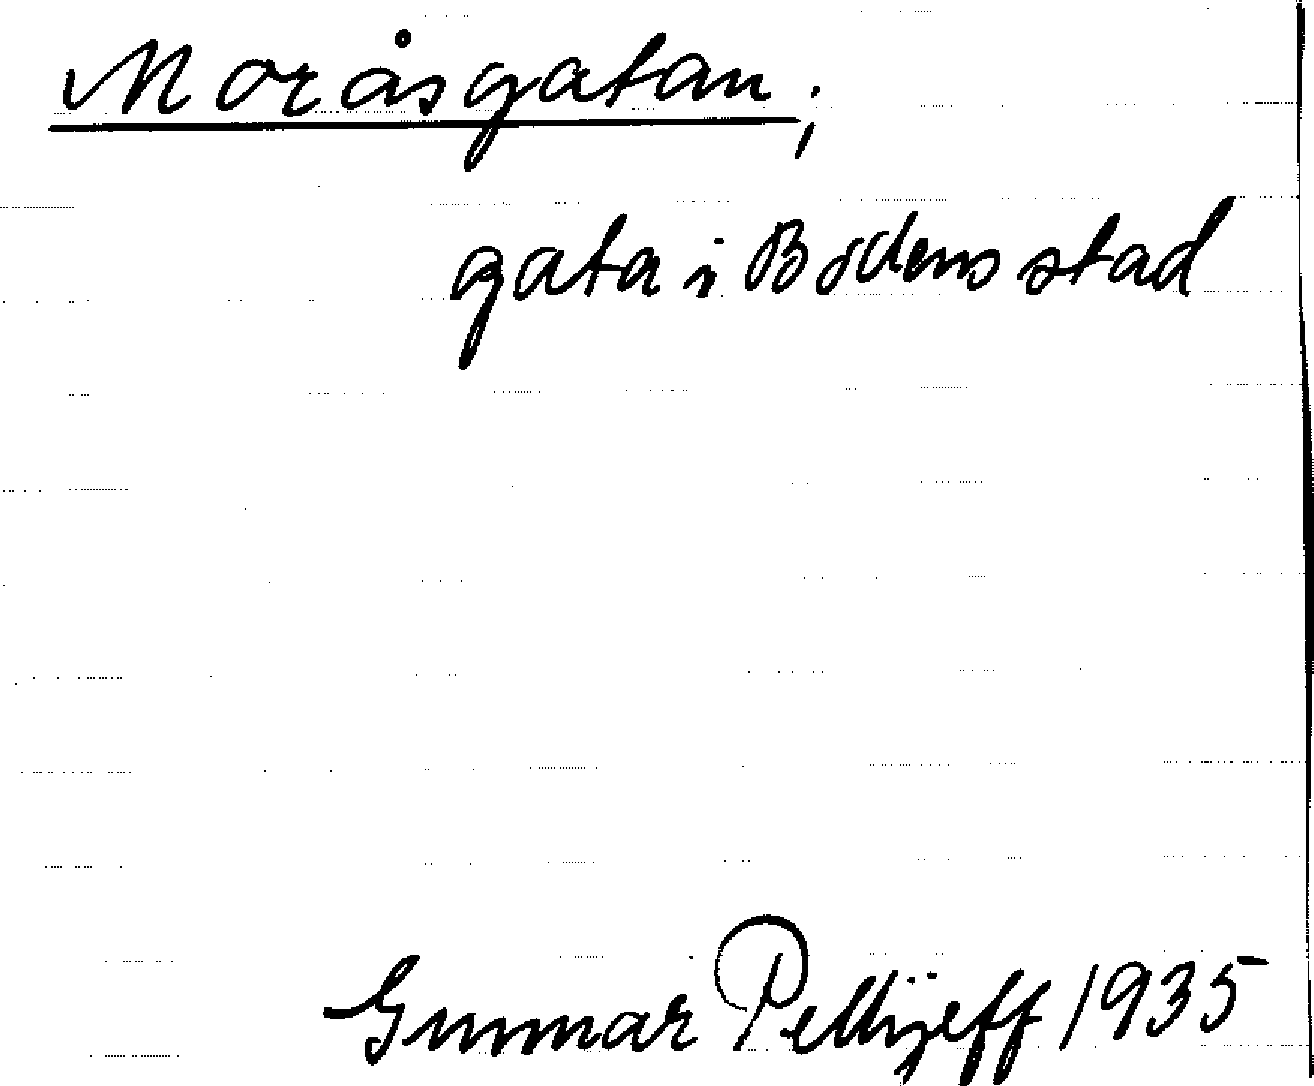 Moråsgatan;
gata i Bodens stad
Gunnar Pellijeff 1935